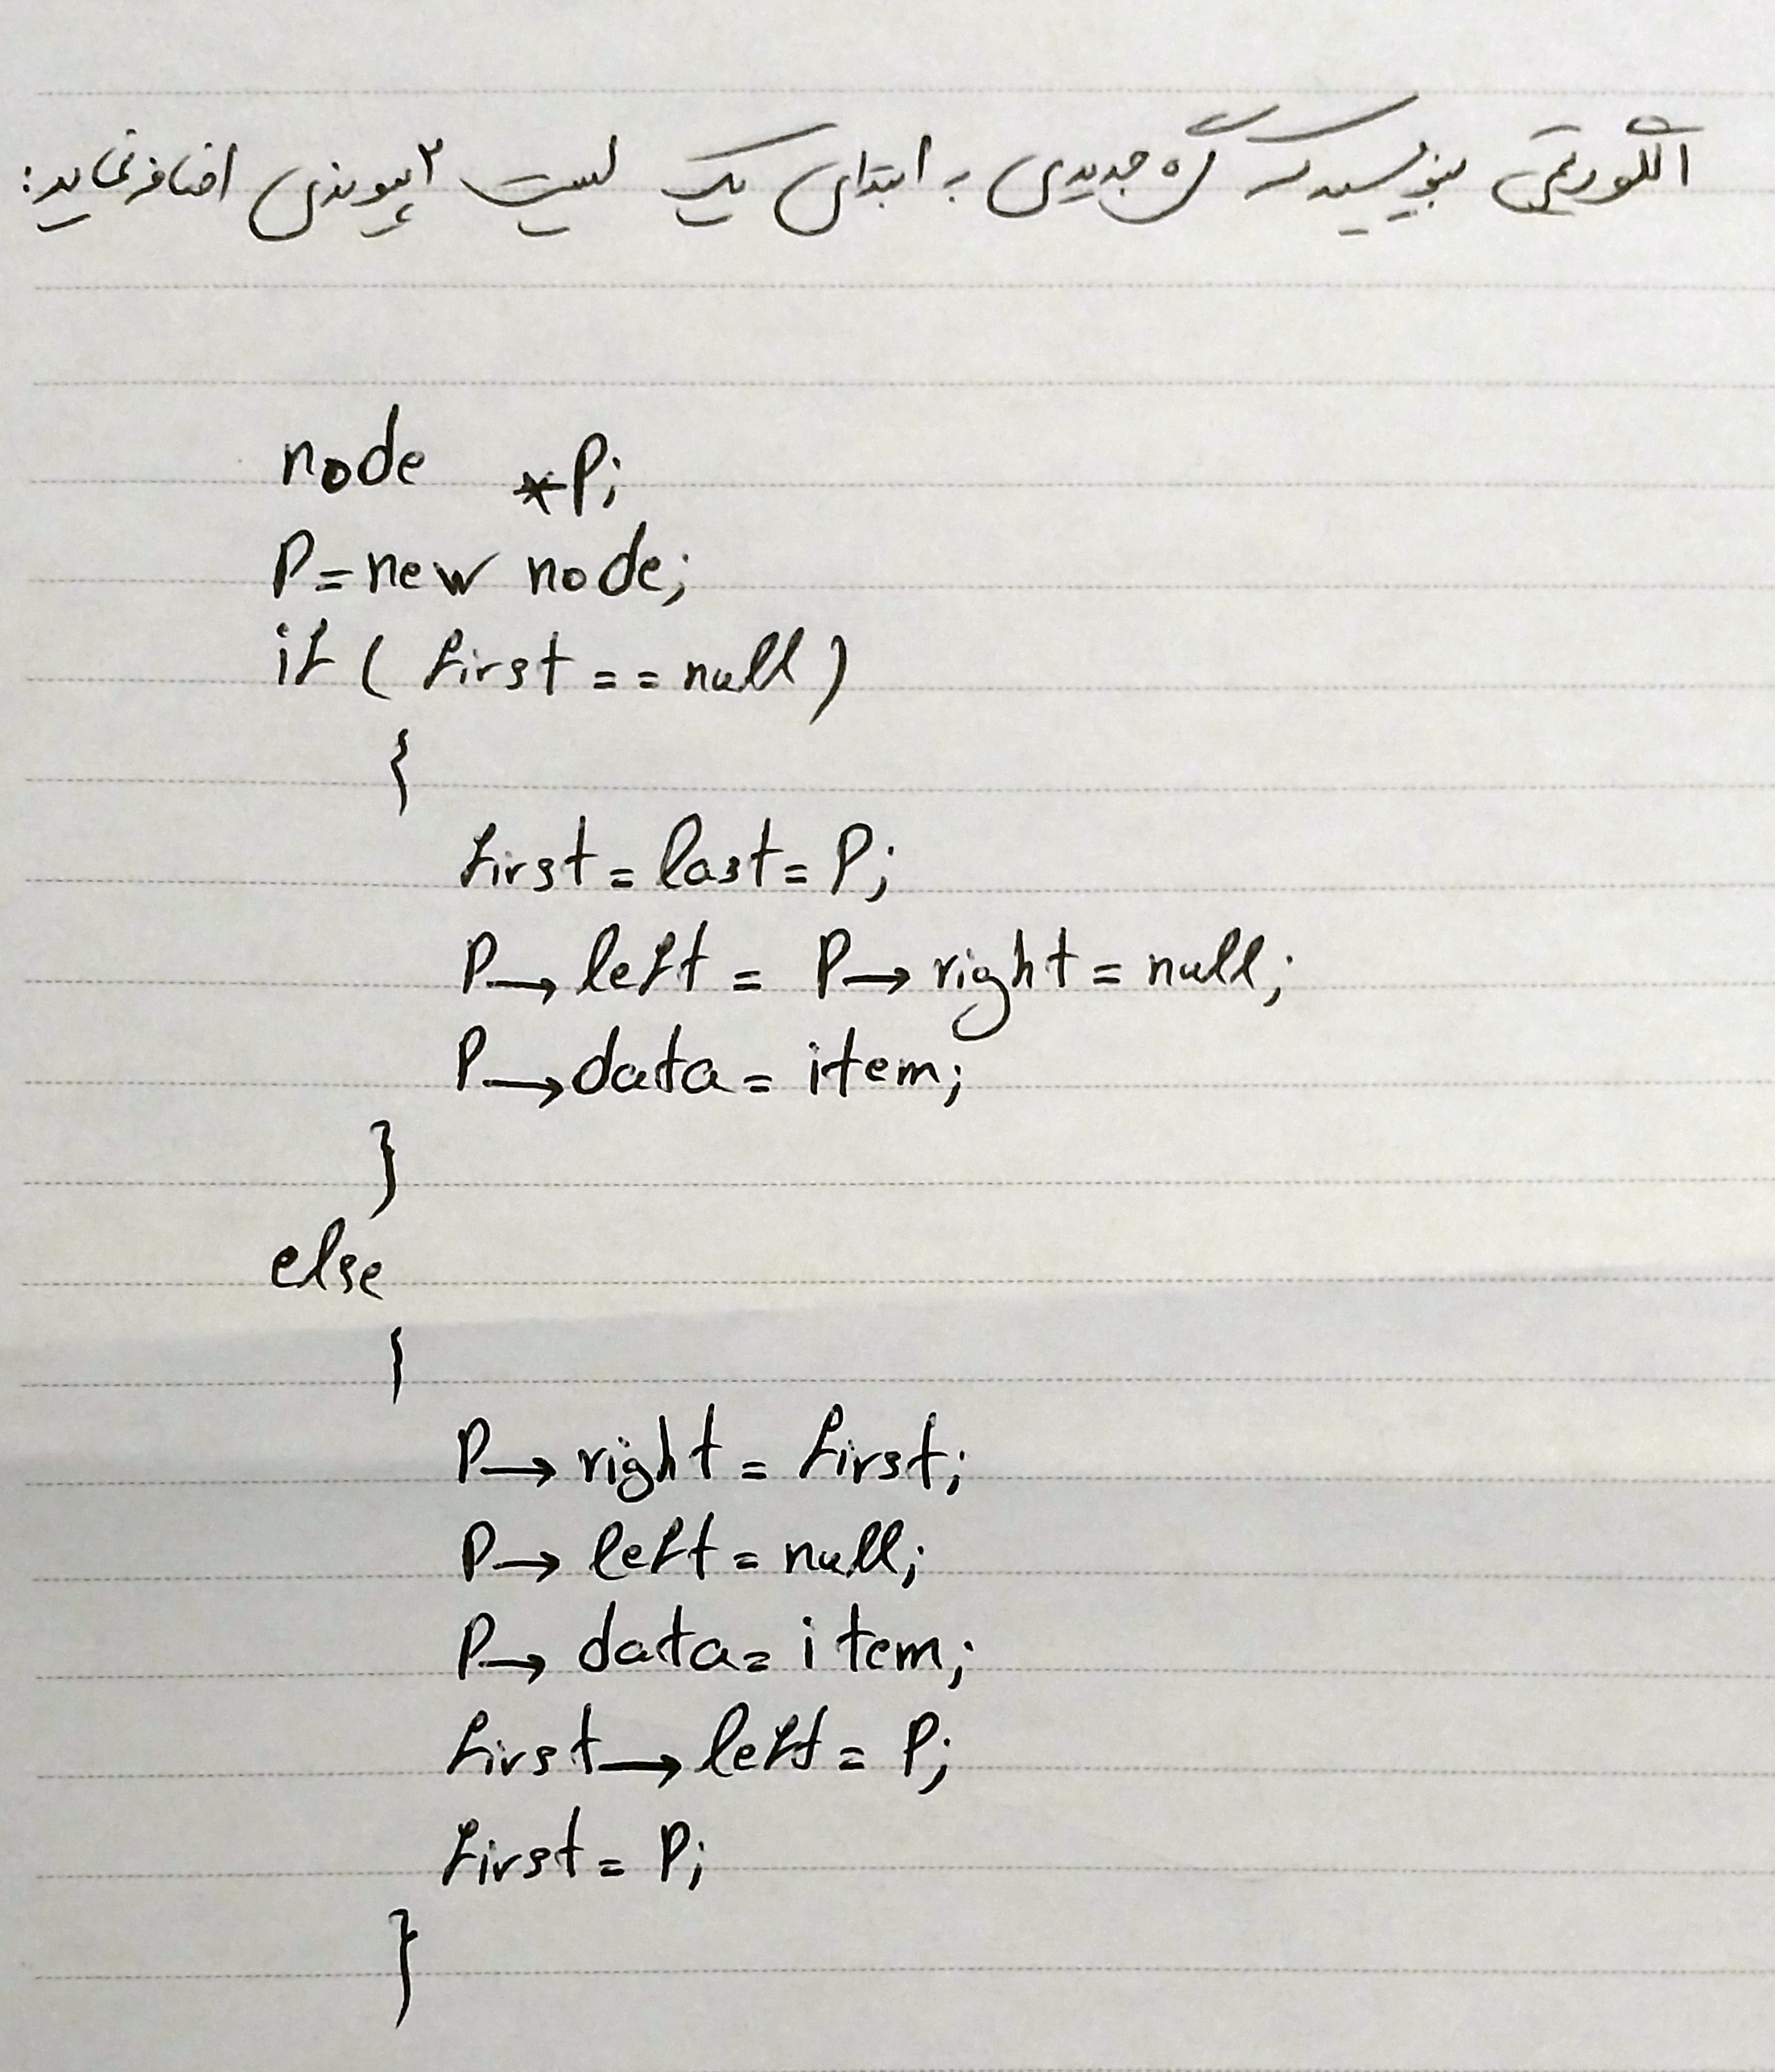 الگوریتمی بنویسید که گره جدیدی به ابتدای یک لیست ۲ پیوندی اضافه نماید:
node *P;
P=new node;
if ( first == null )
{
first = last = P;
P→left = P→right = null;
P→data = item;
}
else
{
P→right = first;
P→left = null;
P→data = item;
first→left = P;
first = P;
}